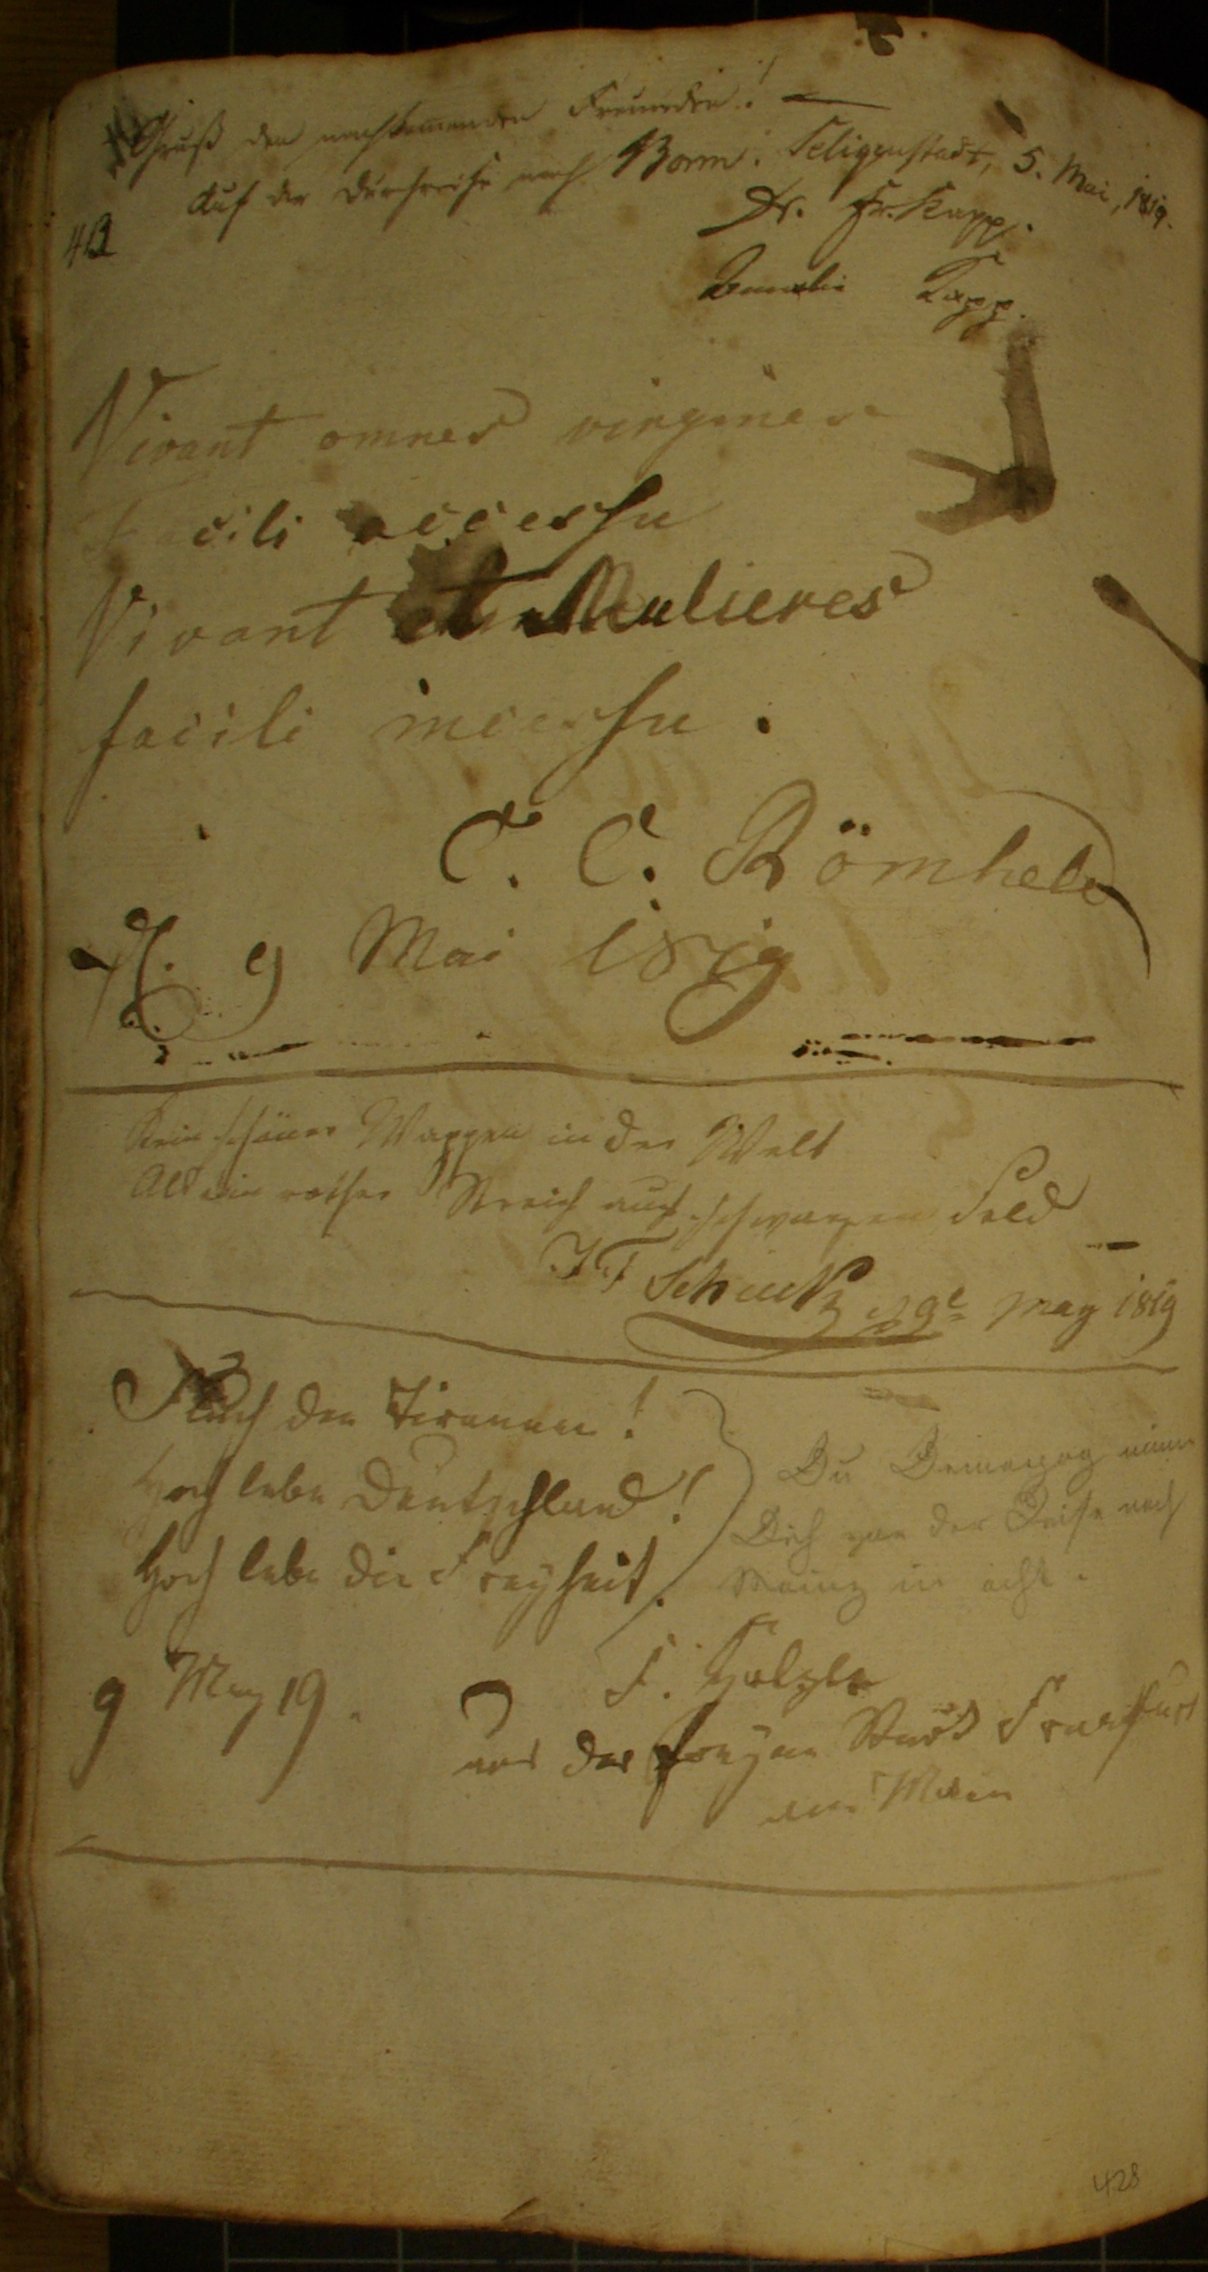 Gruß den nachkommenden Freunden!
Auf der Durchreise nach Bonn. Seligenstadt, 5. Mai, 1819.
Dr. Fr. Kapp.
Amalie Kapp.
Vivant omnes virgines
Facili accessu
Vivant et Mulieres
facili incessu.
C. C. Römheld
d. 9 Mai 1819
Kein schöner Wappen in der Welt
Als ein rother Streich auf schwarzen Feld
Schuck d 9t May 1819
Fluch den Tirannen!
Hoch lebe Deutschland!
Hoch lebe die Freyheit.
Du Demagog nimm
Dich von der Reise nach
Mainz in acht.
9 May 19.
F.
aus der freyen Stadt Frankfurt
am Main
428